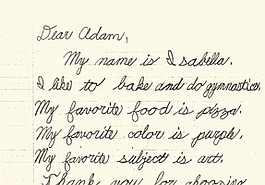 Dear Adam,
My name is Isabella.
I like to bake and do gymnastics.
My favorite food is pizza.
My favorite color is purple.
My favorite subject is art.
Thank you for choosing